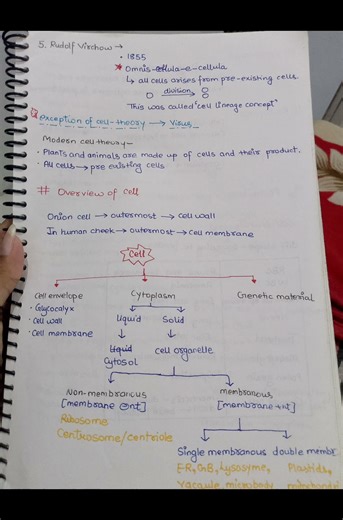 5. Rudolf Virchow →
• 1855
* Omnis-cellula-e-cellula
↳ all cells arises from pre-existing cells.
division
This was called "cell lineage concept"
Exception of cell-theory → Virus
Modern cell theory -
• Plants and animals are made up of cells and their product.
• All cells → pre existing cells
# Overview of Cell
Onion cell → outermost → cell wall
In human cheek → outermost → cell membrane
Cell
Cell envelope Cytoplasm Genetic material
• Glycocalyx liquid Solid
• Cell wall
• Cell membrane
liquid cell organelle
Cytosol
Non-membranous membranous
[membrane ent] [membrane +nt]
Ribosome
Centrosome/centriole
Single membranous double membr
E·R, G·B, Lysosyme, Plastids,
Vacoule microbody mitochondri